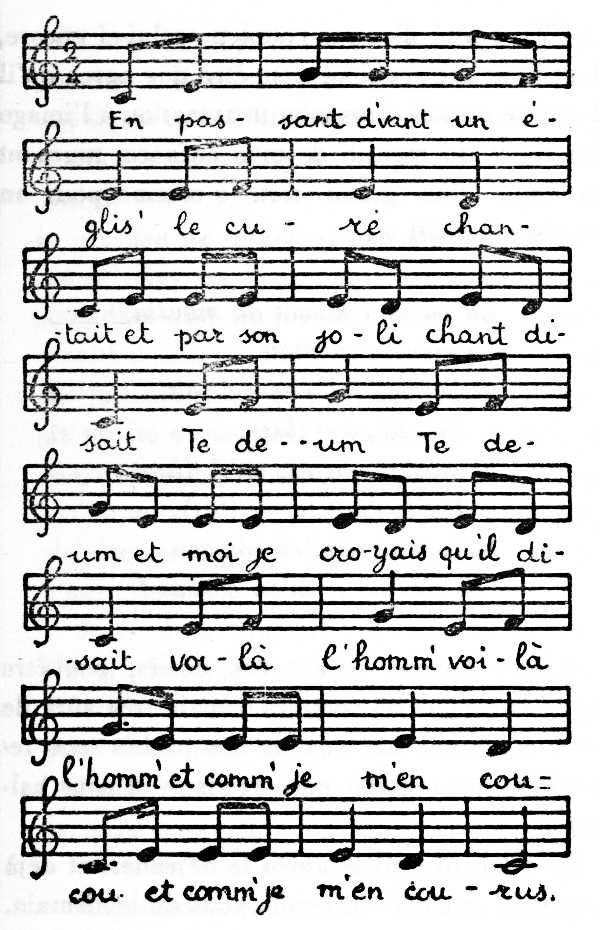 2
4
En pas - sant d'vant un é -
glis' le cu - ré chan -
- tait et par son jo - li chant di -
sait Te de - - um Te de -
- um et moi je cro - yais qu'il di -
- sait voi - là l'homm' voi - là
l'homm' et comm' je m'en cou =
cou. et comm' je m'en cou - rus.